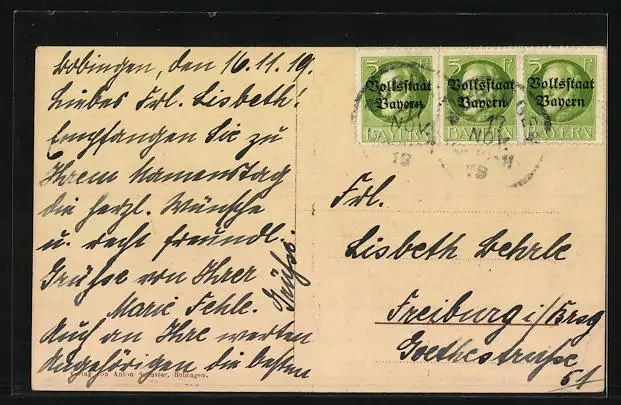 Bobingen, den 16.11.19.
Liebes Frl. Lisbeth!
Empfangen Sie zu
Ihrem Namenstag
die herzl. Wünsche
u. recht freundl.
Grüsse von Ihrer
Marie Fehle.
Auch an Ihre werten
Angehörigen die besten
Grüsse.
Verlag von Anton Schuster, Bobingen.
5 P 5 P 5 P
Volksstaat Bayern Volksstaat Bayern Volksstaat Bayern
BAYERN BAYERN BAYERN
NOV
19
Frl.
Lisbeth Wehrle
Freiburg i/Brsg
Goethestrasse
61